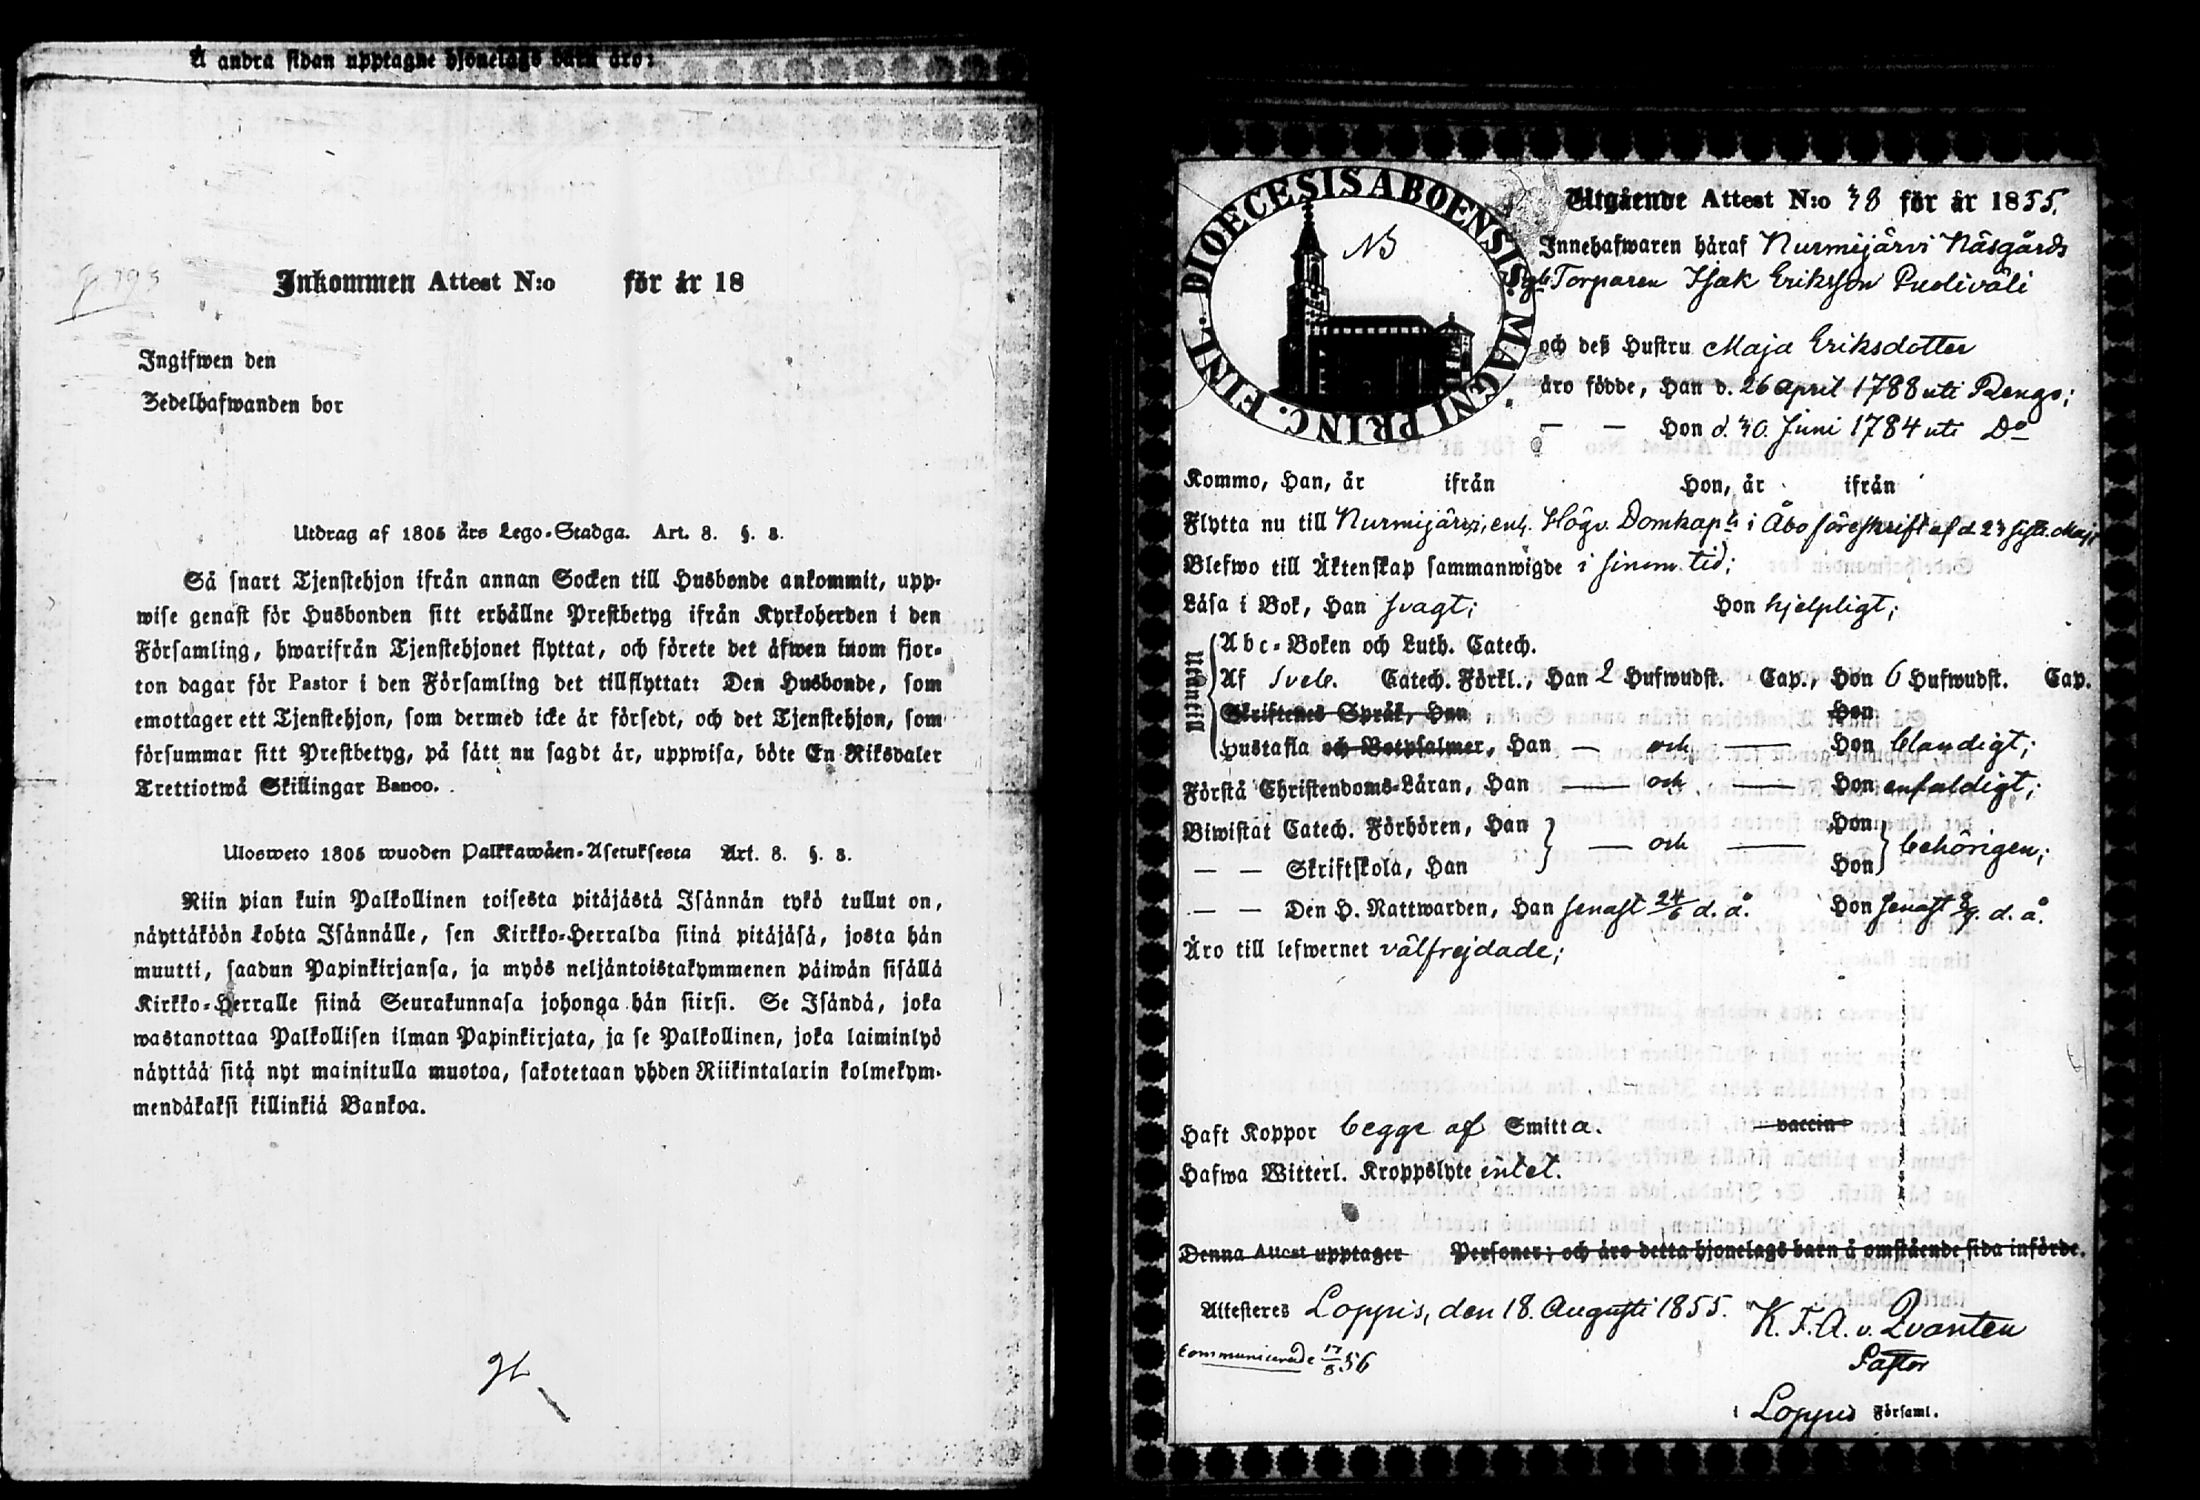 Å andra sidan upptagne hjonelags barn äro:
Inkommen Attest N:o för år 18
Ingifwen den
Zedelhafwanden bor
Utdrag af 1805 års Lego-Stadga. Art. 8. §. 8.
Så snart Tjenstehjon ifrån annan Socken till Husbonde ankommit, upp-
wise genast för Husbonden sitt erhållne Prestbetyg ifrån Kyrkoherden i den
Församling, hwarifrån Tjenstehjonet flyttat, och förete det äfwen inom fjor-
ton dagar för Pastor i den Församling det tillflyttat: Den Husbonde, som
emottager ett Tjenstehjon, som dermed icke är försedt, och det Tjenstehjon, som
försummar sitt Prestbetyg, på sätt nu sagdt är, uppwisa, böte En Riksdaler
Trettiotwå Skillingar Banco.
Ulosweto 1805 wuoden Palkkawäen-Asetuksesta Art. 8. §. 8.
Niin pian kuin Palkollinen toisesta pitäjästä Isännän tykö tullut on,
näyttäköön kohta Isännälle, sen Kirkko-Herralda siinä pitäjäsä, josta hän
muutti, saadun Papinkirjansa, ja myös neljäntoistakymmenen päiwän sisällä
Kirkko-Herralle siinä Seurakunnasa johonga hän siirsi. Se Isändä, joka
wastanottaa Palkollisen ilman Papinkirjata, ja se Palkollinen, joka laiminlyö
näyttää sitä nyt mainitulla muotoa, sakotetaan yhden Riikintalarin kolmekym-
mendäkaksi killinkiä Bankoa.
DIOECESIS ABOENSIS. MAGNI PRINC. FINL.
NB
Utgående Attest N:o 38 för år 1855.
Innehafwaren häraf Nurmijärvi Näsgårds
Torparen Isak Eriksson Puoliväli
och deß Hustru Maja Eriksdotter
äro födde, Han d. 26 April 1788 uti Rengo;
— — Hon d. 30. Juni 1784 uti Do
Kommo, Han, år ifrån Hon, år ifrån
Flytta nu till Nurmijärvi, enl. Högv. Domkapls i Åbo föreskrift af d. 23 sistl. Maji
Blefwo till Äktenskap sammanwigde i sinom tid;
Läsa i Bok, Han svagt; Hon hjelpligt;
Utantill
Abc-Boken och Luth. Catech.
Af Sveb. Catech. Förkl., Han 2 Hufwudst. Cap., Hon 6 Hufwudst. Cap.
Skriftenes Språk, Han Hon
Hustafla och Botpsalmer, Han — och — Hon blandigt;
Förstå Christendoms-Läran, Han — och — Hon enfaldigt;
Biwistat Catech. Förhören, Han — och — Hon behörigen;
— — Skriftskola, Han Hon
— — Den H. Nattwarden, Han senast 24/6 d. å. Hon senast 8/7. d. å.
Äro till lefwernet välfrejdade;
Haft Koppor begge af Smitta. vaccin
Hafwa Witterl. Kroppslyte intet.
Denna Attest upptager Personer; och äro detta hjonelags barn å omstående sida införde.
Attesteres Loppis, den 18. Augusti 1855. K. F. A. v. Qvanten
Communicerade 17/8 56
Pastor
i Loppis Församl.